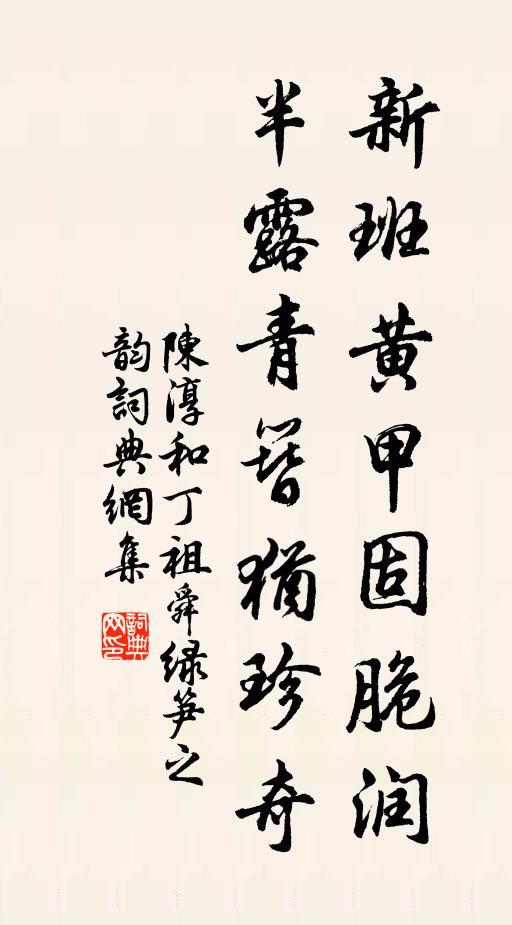 新班黄甲固脆润
半露青簪犹珍奇
陳淳和丁祖舜緑笋之
韵詞典網集
詞典网印